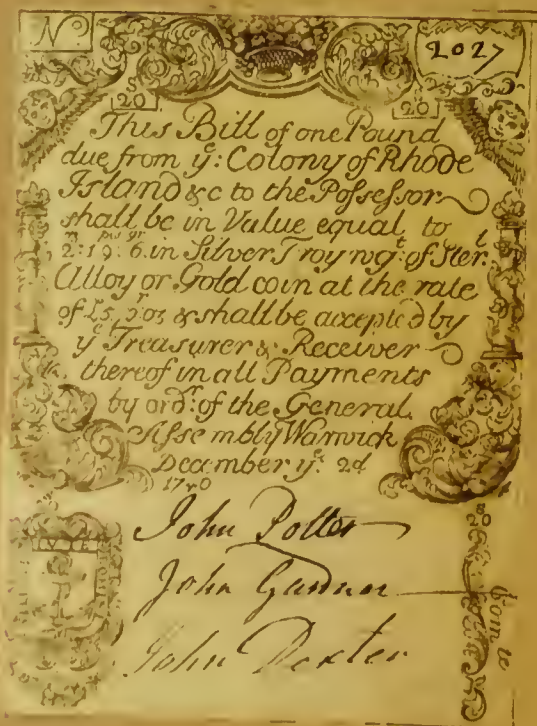 No.
2027
S
20
S
20
This Bill of one Pound
due from ye: Colony of Rhode
Island &c to the Possessor
shall be in Value equal to
2:19:6 in Silver Troy wgt: of Ster.l
Alloy or Gold coin at the rate
of & shall be accepted by
ye Treasurer & Receiver
thereof in all Payments
by ordr: of the General
Assembly Warwick
December ye: 2d
1740
John Potter
John Gardner
John Dexter
S
20
Com.te